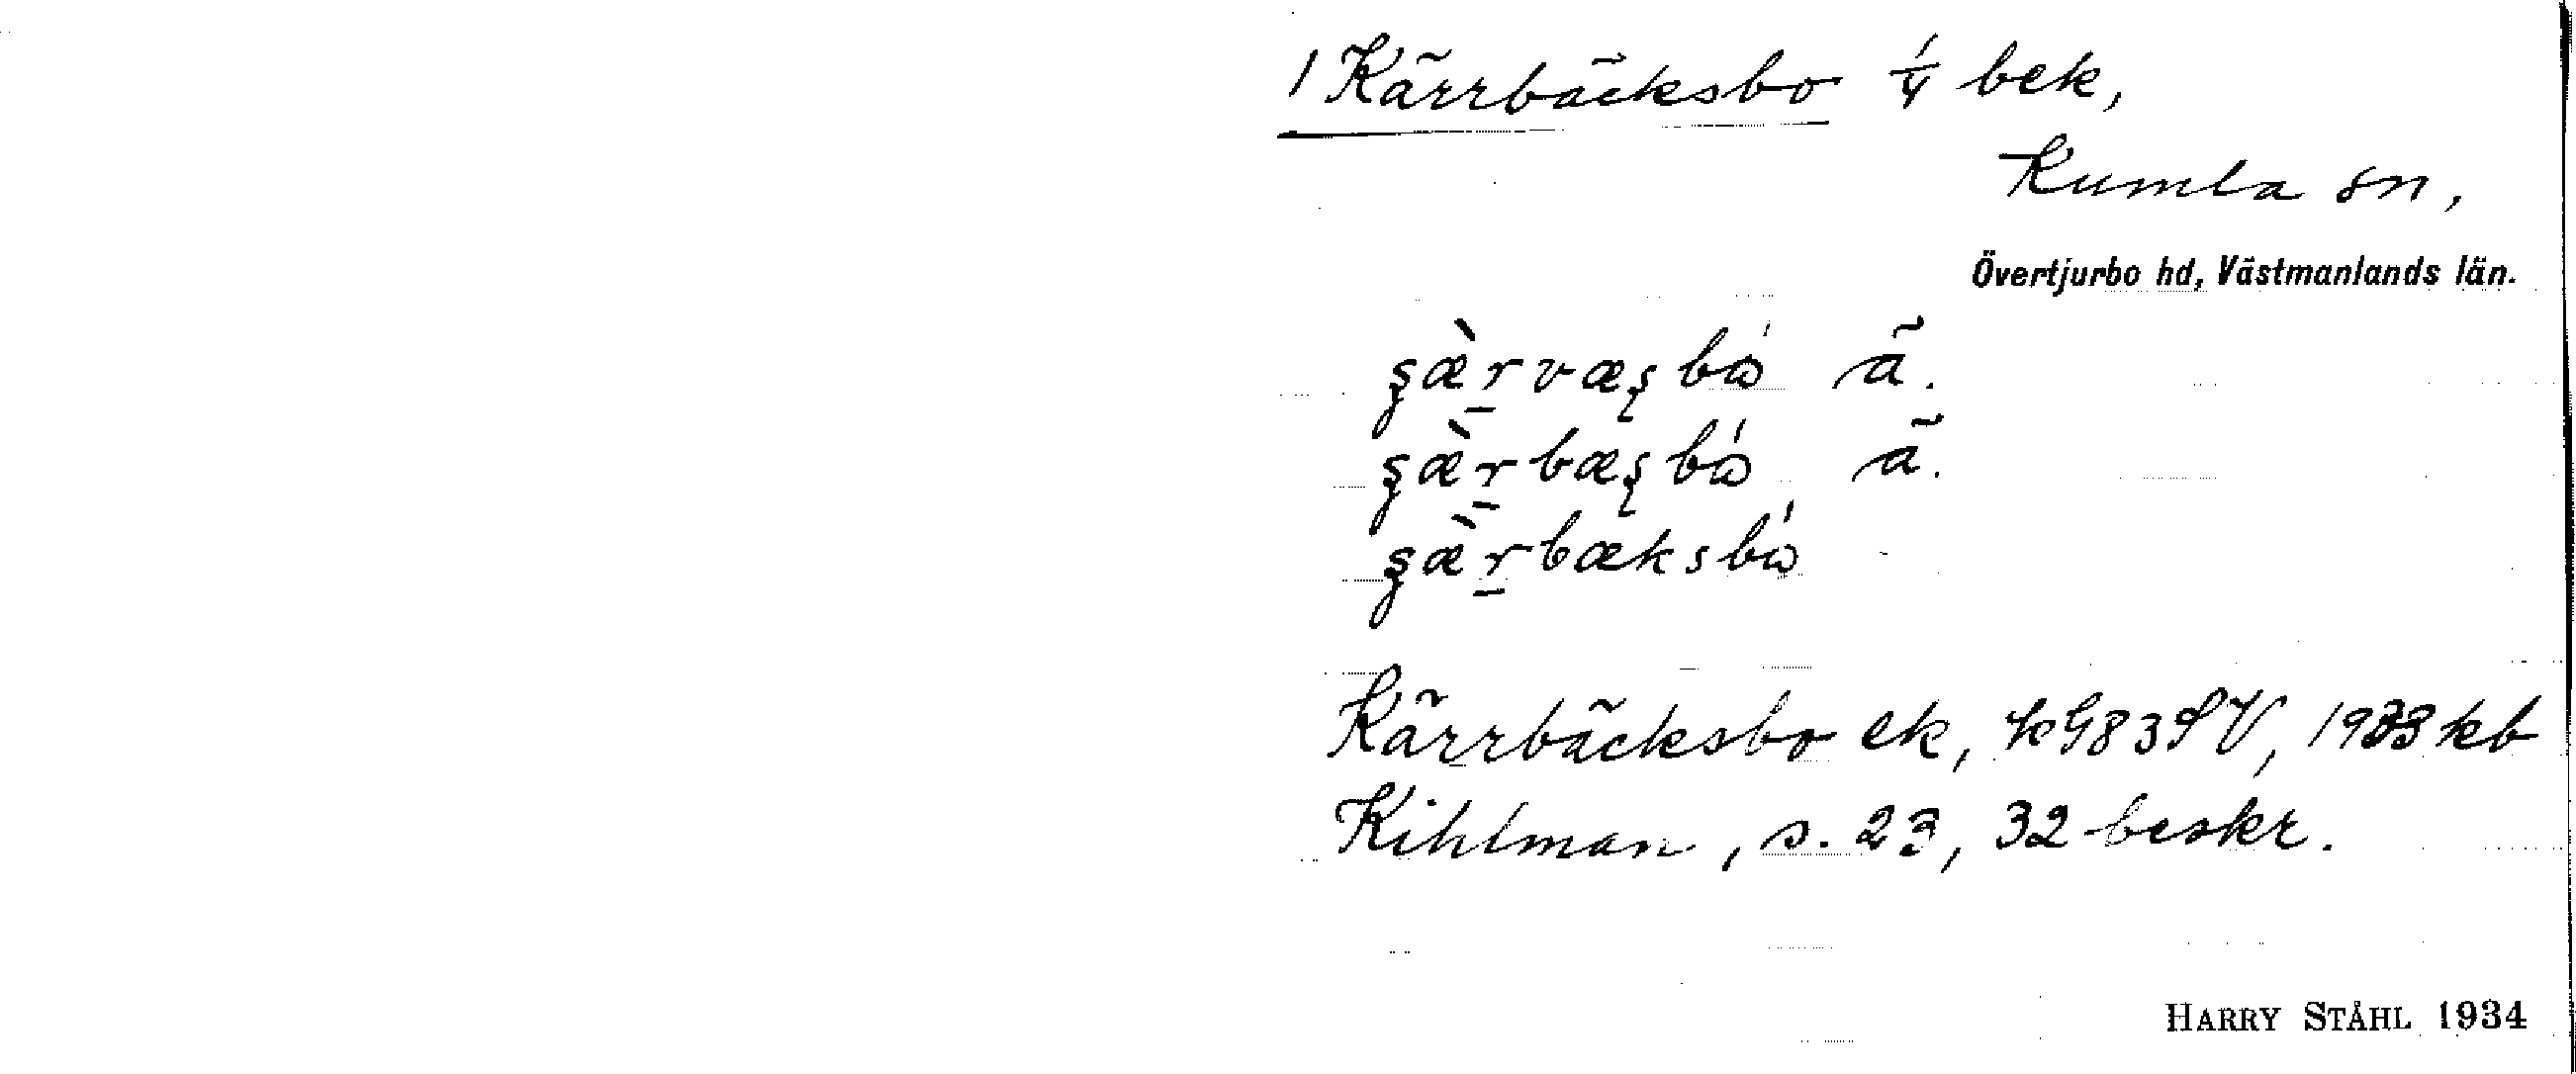 1 Kärrbäcksbo 1/4 bek,
Kumla sn,
Övertjurbo hd, Västmanlands län.
ʂæ̀rvæʂbω̍ ä.
ʂæ̀rbæʂbω̍ ä.
ʂæ̀rbæksbω̍
Kärrbäcksbo ek, kG83SV, 1933 kb
Kihlman, s. 23, 32 beskr.
HARRY STÅHL 1934